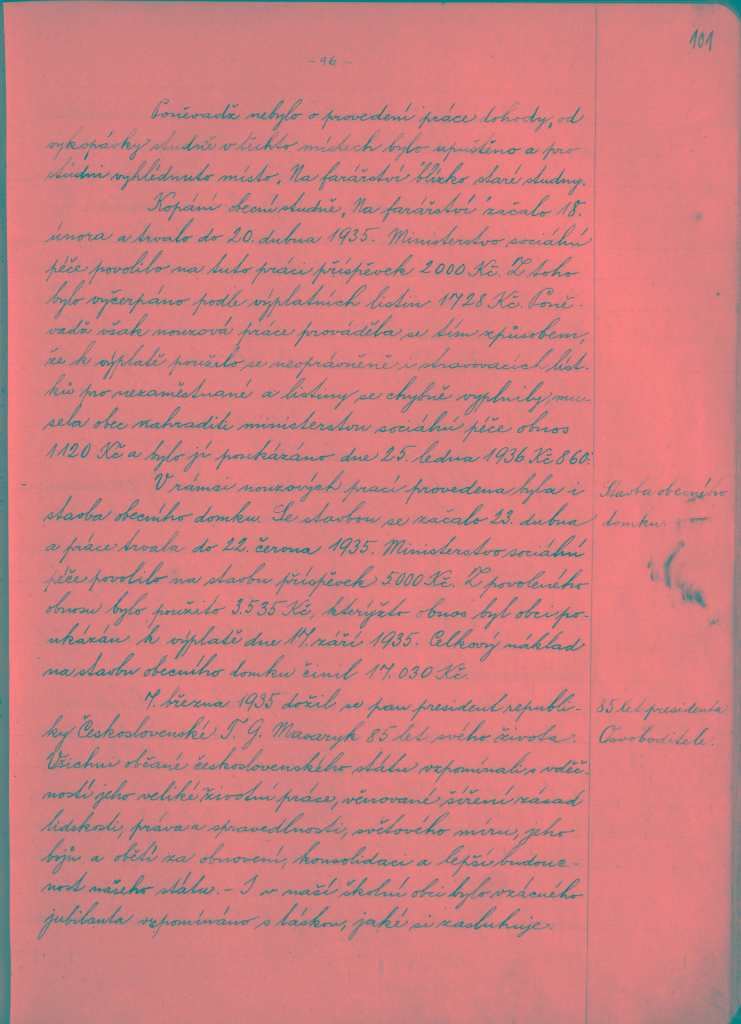 101
- 96 -
Poněvadž nebylo o provedení práce dohody, od
vykopávky studně v těchto místech bylo upuštěno a pro
studni vyhlédnuto místo „Na farářství" blízko staré studny.
Kopání obecní studně „Na farářství" začalo 18.
února a trvalo do 20. dubna 1935. Ministerstvo sociální
péče povolilo na tuto práci příspěvek 2000 Kč. Z toho
bylo vyčerpáno podle výplatních listin 1728 Kč. Poně-
vadž však nouzová práce prováděla se tím způsobem,
že k výplatě použilo se neoprávněně i stravovacích líst-
ků pro nezaměstnané a listiny se chybně vyplnily, mu-
sela obec nahraditi ministerstvu sociální péče obnos
1120 Kč a bylo jí poukázáno dne 25. ledna 1936 Kč 860.-
V rámci nouzových prací provedena byla i
stavba obecního domku. Se stavbou se začalo 23. dubna
a práce trvala do 22. června 1935. Ministerstvo sociální
péče povolilo na stavbu příspěvek 5000 Kč. Z povoleného
obnosu bylo použito 3.535 Kč, kterýžto obnos byl obci po-
ukázán k výplatě dne 17. září 1935. Celkový náklad
na stavbu obecního domku činil 17.030 Kč.
Stavba obecního
domku.
7. března 1935 dožil se pan president republi-
ky Československé T. G. Masaryk 85 let svého života.
Všichni občané československého státu vzpomínali s vděč-
ností jeho veliké životní práce, věnované šíření zásad
lidskosti, práva a spravedlnosti, světového míru, jeho
bojů a obětí za obnovení, konsolidaci a lepší budouc-
nost našeho státu. - I v naší školní obci bylo vzácného
jubilanta vzpomínáno s láskou, jaké si zasluhuje.
85 let presidenta
Osvoboditele.